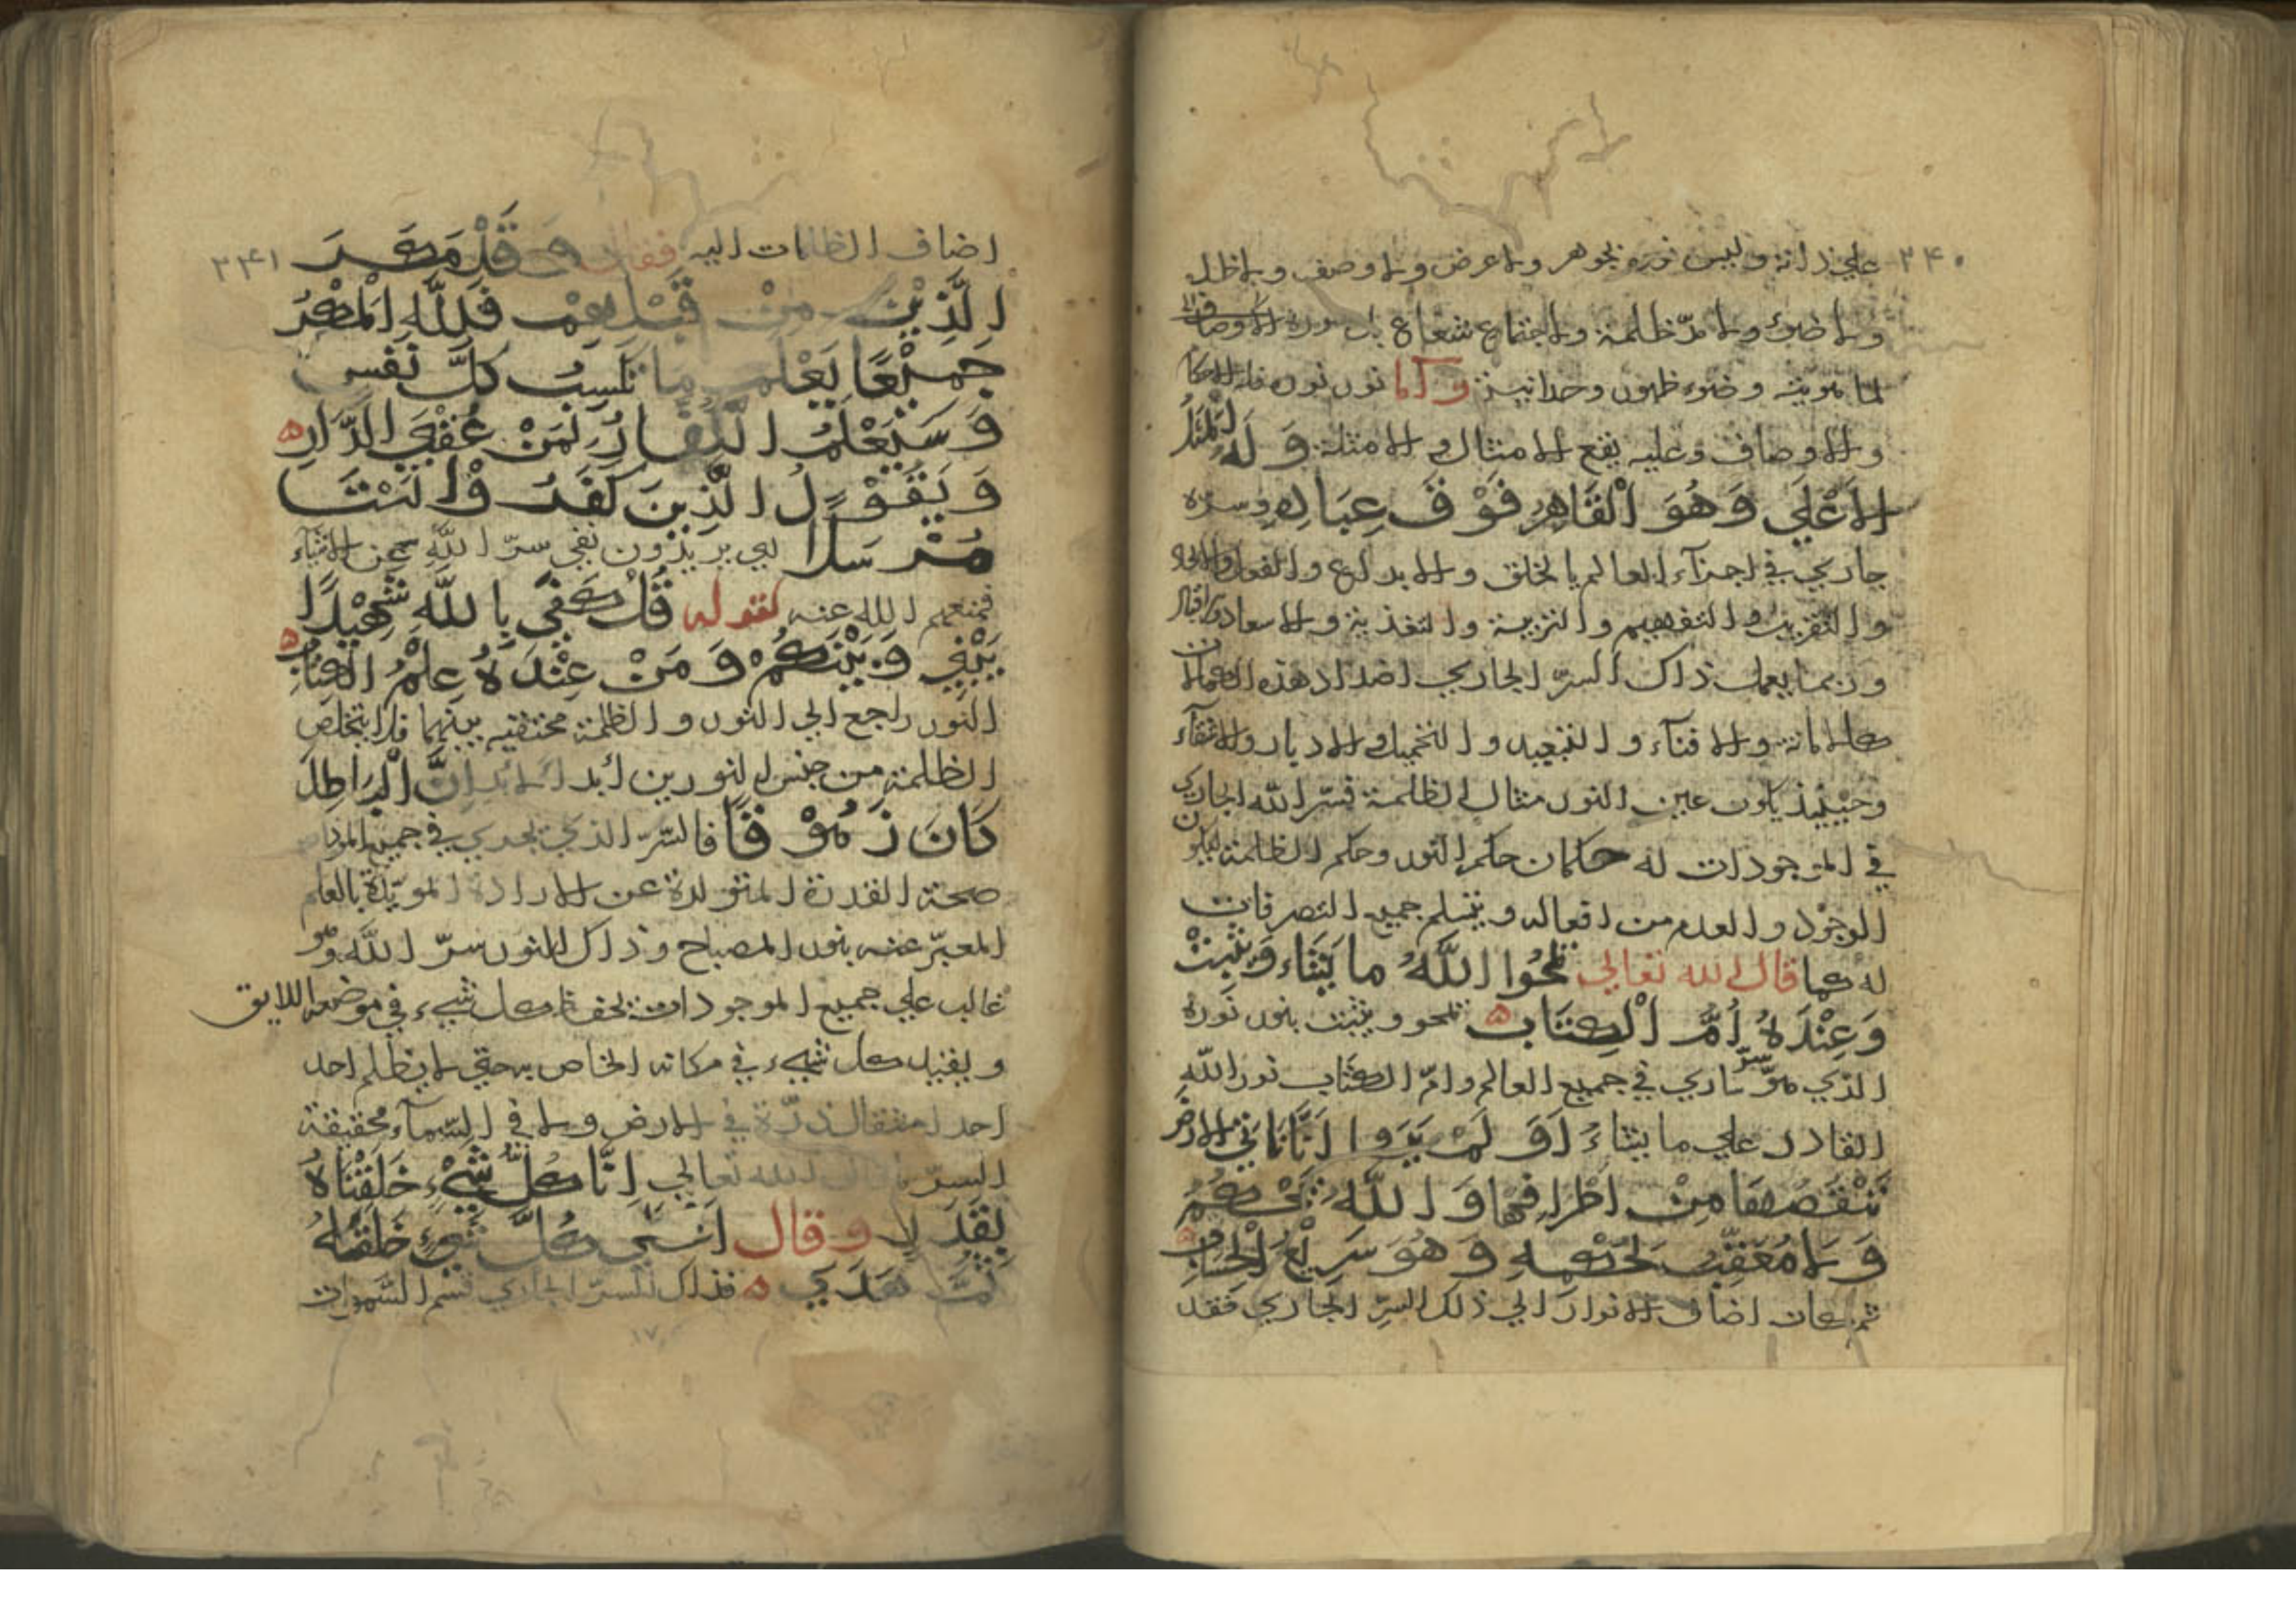 ٢٤٠
علي ذاته وليس نوره بجوهر ولا عرض ولا وصف ولا ظل
ولا ضوئ ولا ظلمة ولا اجتماع شعاع بل نوره الاوصاف
لما هويته وضوء ظهور وحدانيته وكلما نور نوره فله
والاوصاف وعليه يقع الامثال والامثلة وَلَهُ المَثَلُ
الاَعْلَي وَهُوَ الْقَاهِرُ فَوْقَ عِبَادِهِ وسره
جاري في اجزآء العالم بالخلق والابداع و
والتقريب والتفهيم والتربية والتغذية والاسعاد
وربما يعمل ذاك السرّ الجاري اضداد هذه
كالاماتة والافنآء والتبعيد و والادبار والاشقآء
وحينيذ يكون عين النور مثال الظلمة فسرّ الله الجاري
في الموجودات له حكمان حكم النور وحكم الظلمة ليكون
الوجود والعدم من افعاله ويتسلم جميع التصرفات
له كما قال الله تعالي يمحُوا اللَّهُ ما يَشَاء وَيثبِتْ
وَعِنْدَهُ اُمّ الْكِتَابِ يمحو ويثبت بنور نوره
الذي هو سرّ ساري في جميع العالم وامّ الكتاب نور الله
القادر علي ما يشاءُ اَوَ لَمْ يَرَوا اَنَّا نَاتِي الارض
نَنْقُصُهَا مِنْ اَطْرَافِهَا وَاللَّهُ يَحْكُمُ
وَلَا مُعَقِّبَ لِحُكْمِهِ وَهُوَ سَرِيْعُ الْحِسَابِ
ثم كان اضاف الانوار الي ذلك السرّ الجاري فقد
٢٤١
اضاف الظلمات اليه فقال وَقَدْ مَكَرَ
الَّذِيْنَ مِنْ قَبْلِهِمْ فَلِلَّهِ اَلْمَكْرُ
جَمِيْعًا يَعْلَمُ مَا تَكْسِبُ كُلَّ نَفْسٍ
وَسَيَعْلَمُ الْكُفَّارُ لِمَنْ عُقْبَي الدَّارِ
وَيَقُوْلُ الَّذِينَ كَفَرُوْا لَسْتَ
مُرْسَلًا اي يريدون نفي سرّ اللَّه عن الاشيآء
فمنعهم الله عنه لقوله قُلْ كَفَي بِاللَّهِ شَهِيْدًا
بَيْنِي وَبَيْنَكُمْ وَمَنْ عِنْدَهُ عِلْمُ الْكِتَابِ
النور راجع الي النور والظلمة مختفيه بينهما فلا يتخلص
الظلمة من جنس النورين ابدا لابد اِنَّ الْبَاطِلَ
كَانَ زَهُوْقًا فالسّرّ الذي يجري في جميع
صحة القدرة المتولدة عن الارادة المويّدة بالعلم
المعبّر عنه بنور المصباح وذاك النور سرّ اللَّه وهو
غالب علي جميع الموجودات يحفظ كل شيء في موضعه اللايق
ويقيد كل شيء في مكانه الخاص به حتي لا يظلم احد
احدا مثقال ذرّة في الارض ولا في السّمآء محقيقة
السرّ قال الله تعالي اِنَّا كُلَّ شَيْءٍ خَلَقْنَاهُ
بِقَدَرٍ وقال اَعْطَي كُلَّ شَيْءٍ خَلْقَهُ
ثُمَّ هَدَي فذاك السرّ الجاري قسم السّموات